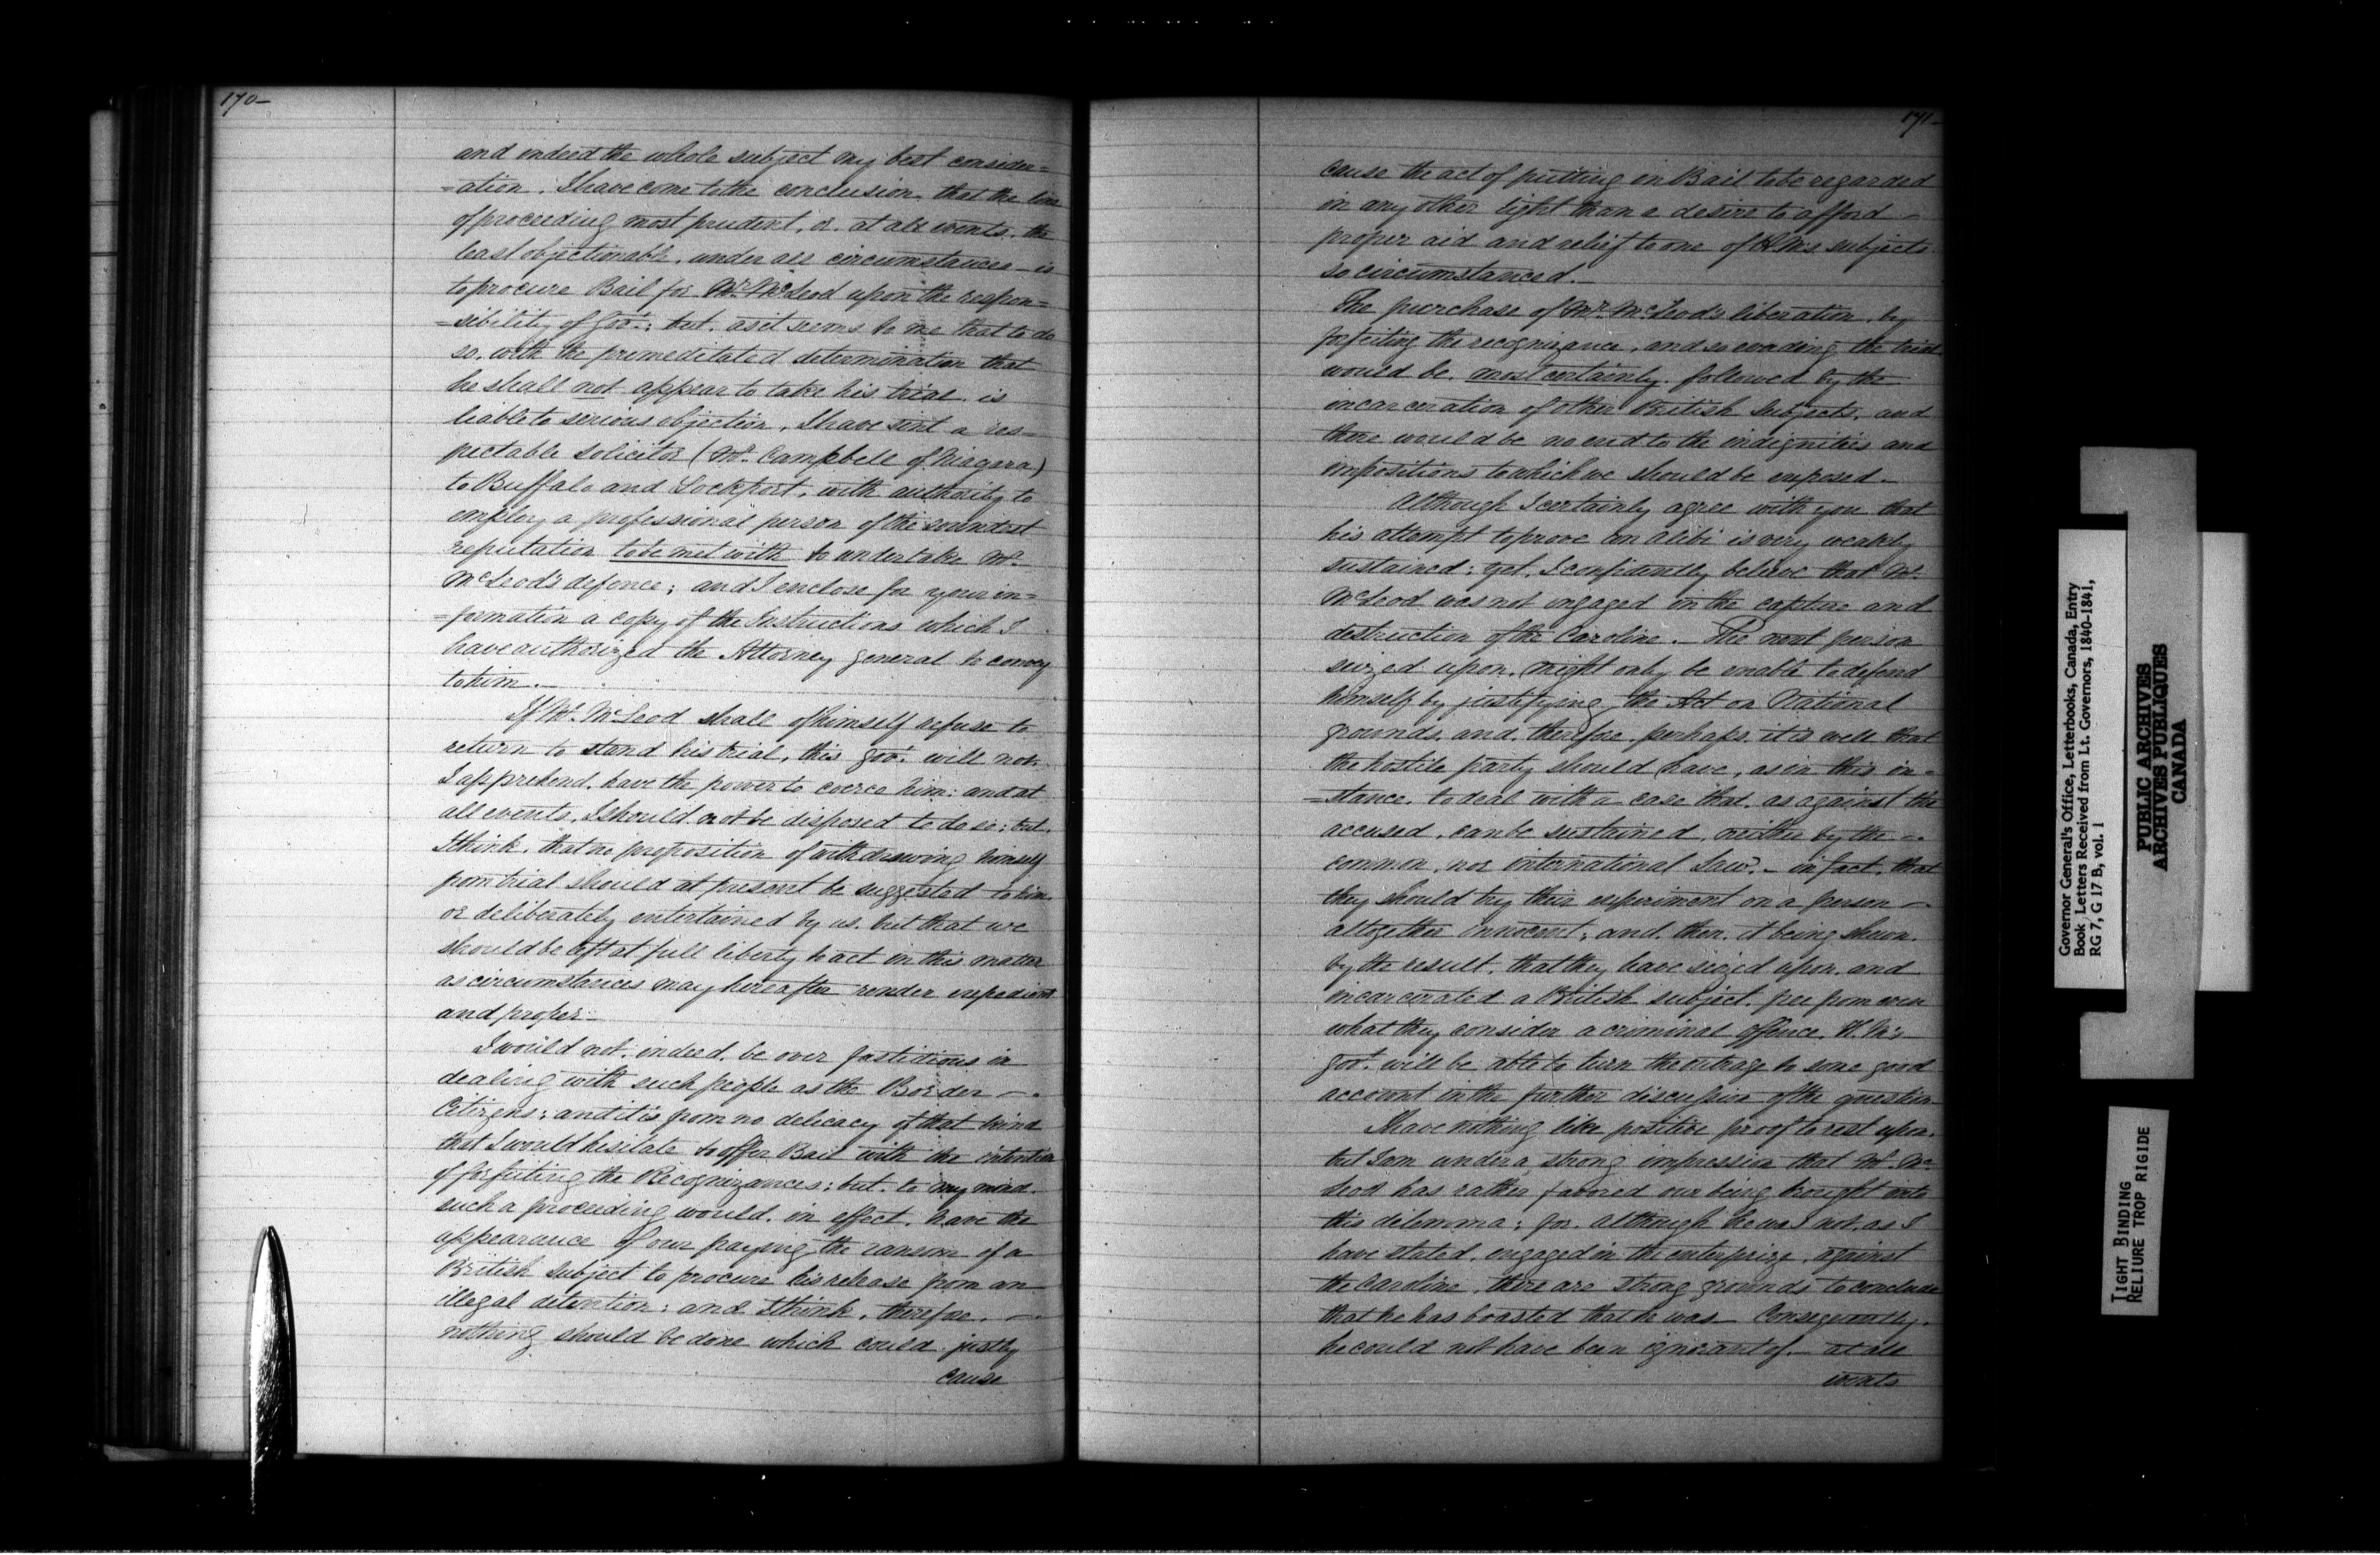 170-
and indeed the whole subject my best consider=
=ation. I have come to the conclusion that the line
of proceeding most prudent, or at all events, the
least objectionable, under all circumstances - is
to procure Bail for Mr. McLeod upon the respon=
=sibility of Govt.; but, as it seems to me that to do
so, with the premeditated determination that
he shall not appear to take his trial, is
liable to serious objection, I have sent a res-
pectable solicitor (Mr. Campbell of Niagara)
to Buffalo and Lockport, with authority to
employ a professional person of the soundest
reputation to be met with to undertake Mr.
McLeod's defence; and I enclose for your in=
=formation a copy of the Instructions which I
have authorized the Attorney general to convey
to him.-
If Mr. McLeod shall of himself refuse to
return to stand his trial, this Govt. will not,
I apprehend, have the power to coerce him: and at
all events, I should not be disposed to do so; but,
I think, that no proposition of withdrawing himself
from trial should at present be suggested to him,
or deliberately entertained by us, but that we
should be left at full liberty to act in this matter
as circumstances may hereafter render expedient
and proper-
I would not, indeed, be over fastidious in
dealing with such people as the Border -
Citizens; and it is from no delicacy of that kind
that I would hesitate to offer Bail with the intention
of forfeiting the Recognizances; but, to my mind,
such a proceeding would, in effect, have the
appearance of our paying the ransom of a
British subject to procure his release from an
illegal detention: and I think, therefore, -
nothing should be done which could justly
cause
171-
cause the act of putting in Bail to be regarded
in any other light than a desire to afford -
proper aid and relief to one of H.M's subjects
so circumstanced.-
The purchase of Mr. McLeod's liberation, by
forfeiting the recognizance, and so evading the trial
would be, most certainly, followed by the
incarceration of other British Subjects, and
there would be no end to the indignities and
impositions to which we should be exposed.-
Although I certainly agree with you that
his attempt to prove an alibi is very weakly
sustained; yet, I confidently believe that Mr.
McLeod was not engaged in the capture and
destruction of the Caroline.- The next person
seized upon, might only be enable to defend
himself by justifying the Act on National
grounds, and, therefore, perhaps, it is well that
the hostile party should have, as in this in=
=stance, to deal with a case that, as against the
accused, can be sustained, neither by the -
common, nor international Law.- in fact, that
they should try their experiment on a person -
altogether innocent; and, then, it being shewn,
by the result, that they have seized upon, and
incarcerated a British subject, free from even
what they consider a criminal offence, H.M's
Govt. will be able to turn the outrage to some good
account in the further discussion of the question-
I have nothing like positive proof to rest upon,
but I am under a strong impression that Mr. Mc
Leod has rather favored our being brought into
this dilemma; for, although he was not, as I
have stated, engaged in the enterprize, against
the Caroline, there are strong grounds to conclude
that he has boasted that he was- Consequently,
he could not have been ignorant of.- at all
events
Governor General's Office, Letterbooks, Canada, Entry
Book, Letters Received from Lt. Governors, 1840-1841,
RG 7, G 17 B, vol. 1
PUBLIC ARCHIVES
ARCHIVES PUBLIQUES
CANADA
TIGHT BINDING
RELIURE TROP RIGIDE